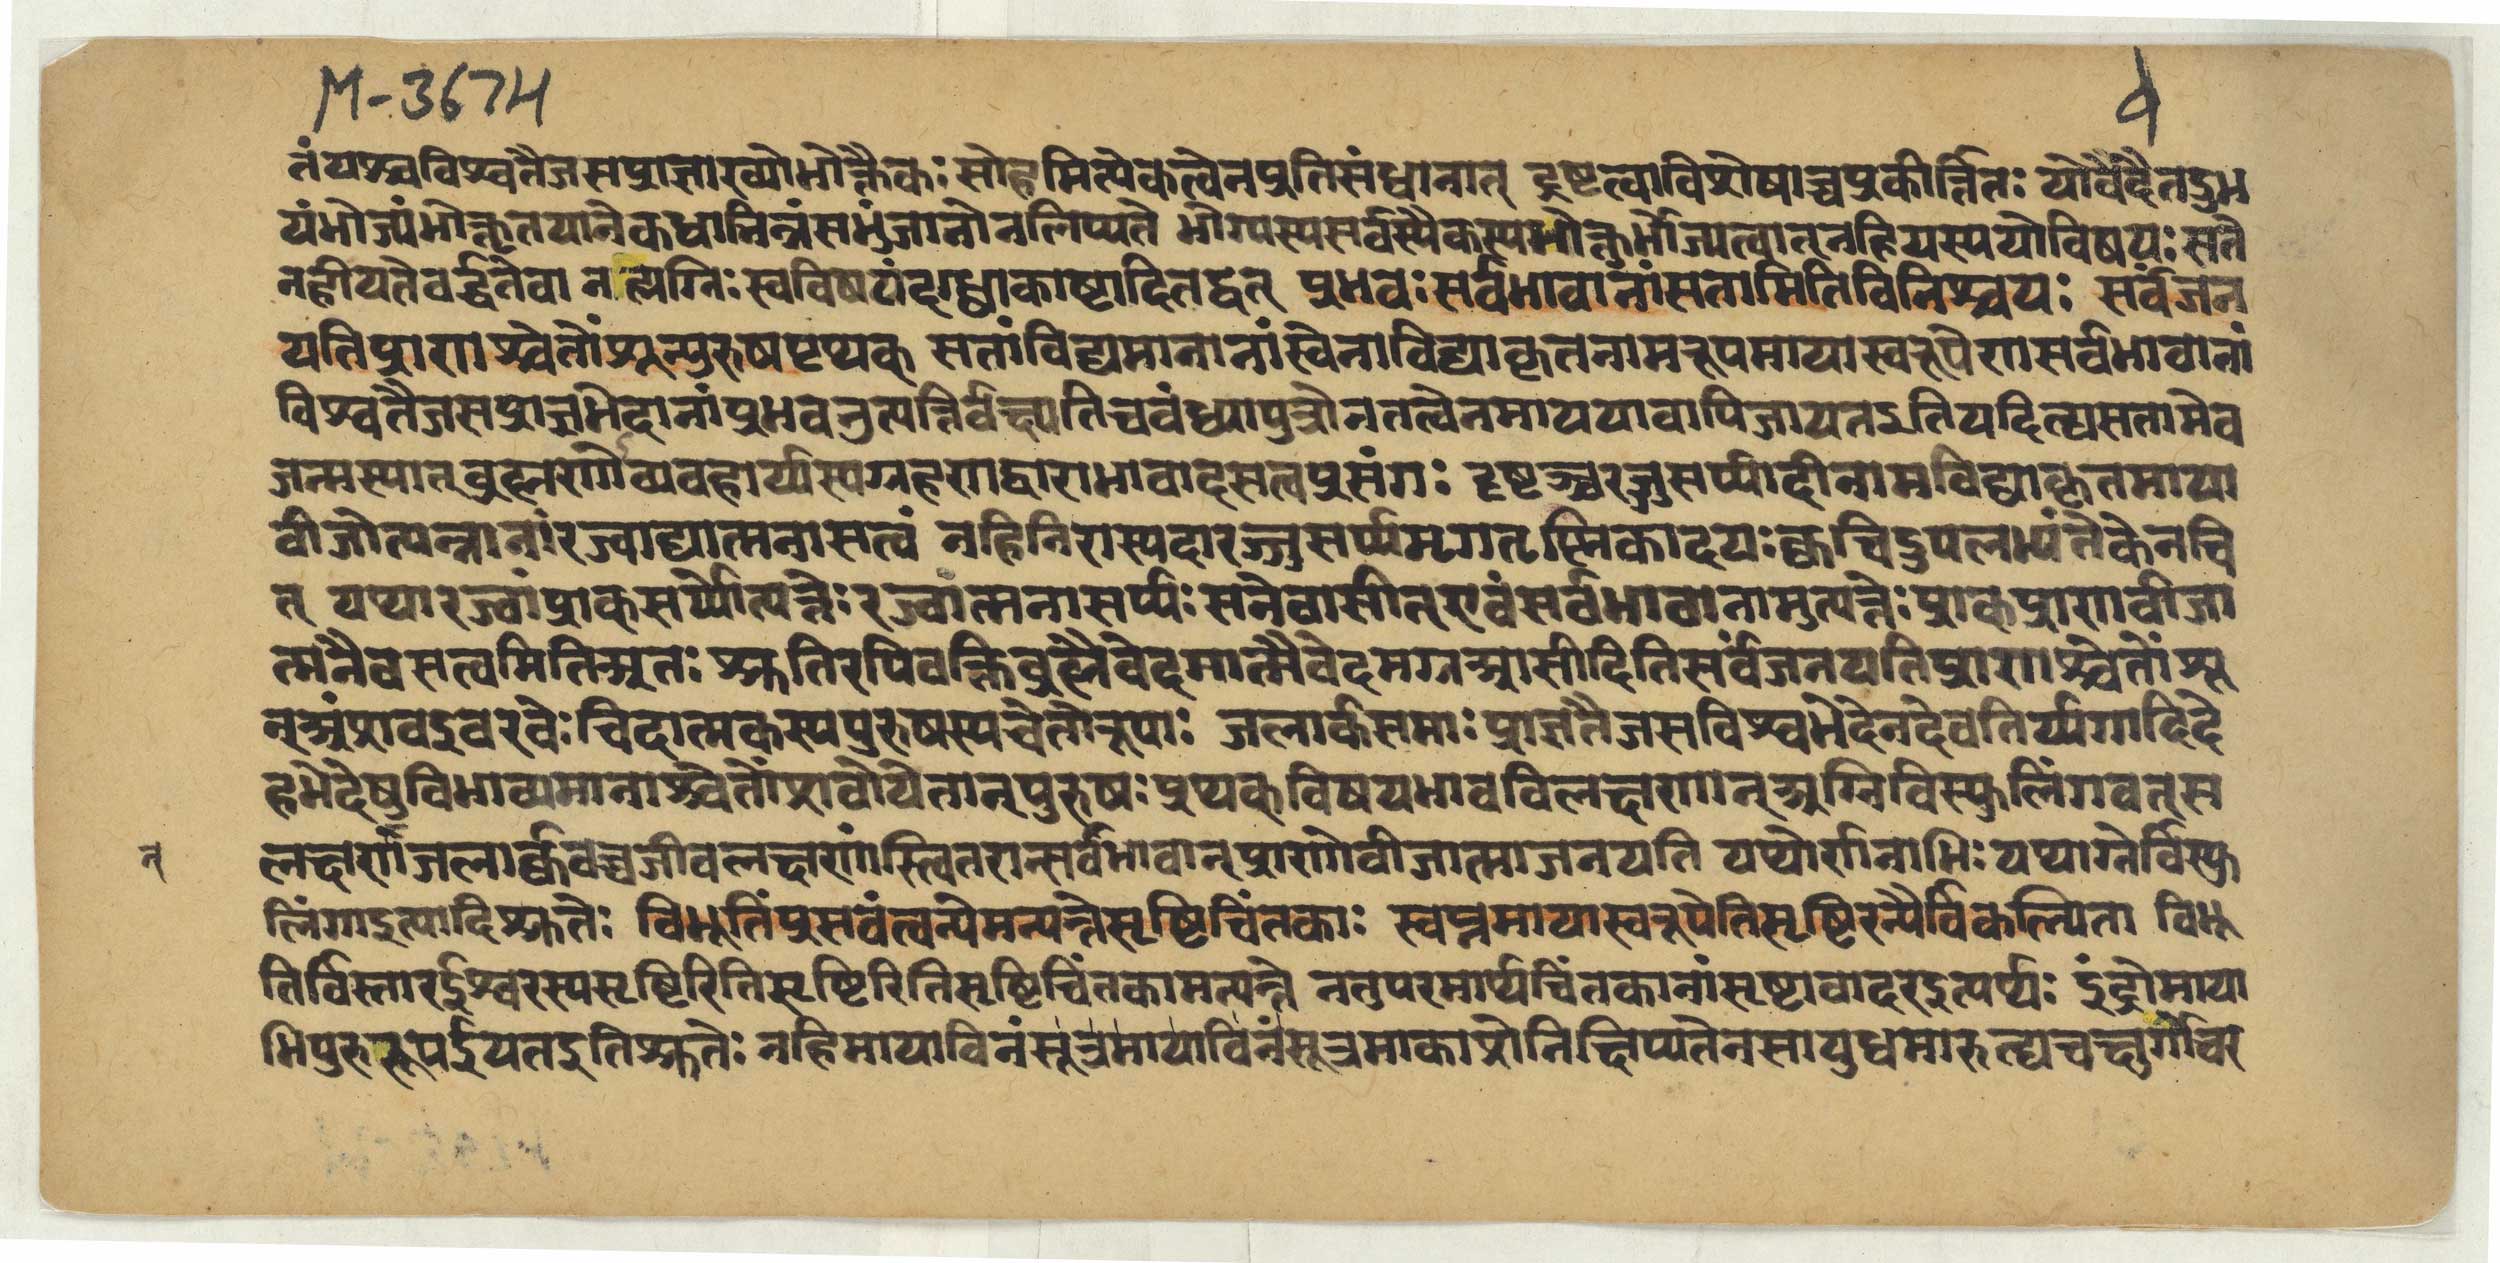 M-3674
१
तं यश्च विश्वतैजसप्राज्ञाख्यो भोक्तैकः सोहमित्येकत्वेन प्रतिसंधानात् द्रष्टृत्वाविशेषाच्च प्रकीर्त्तितः यो वै वेदैतदुभ
यं भोज्यं भोक्तृतयानेकधा भिन्नं स भुंजानो न लिप्यते भोग्यस्य सर्वस्यैकस्य भोक्तुर्भोज्यत्वात् न हि यस्य यो विषयः स ते
न हीयते वर्द्धते वा न ह्यग्निः स्वविषयं दग्ध्वा काष्टादि तद्वत् प्रभवः सर्वभावानां सतामिति विनिश्चयः सर्वं जन
यति प्राणश्चेतोंशून्पुरुषः पृथक् सतां विद्यमानानां स्वेनाविद्याकृतनामरूपमायास्वरूपेण सर्वभावानां
विश्वतैजसप्राज्ञभेदानां प्रभव उत्पत्तिर्वक्ष्यति च वंध्यापुत्रो न तत्वेन मायया वापि जायत इति यदि ह्यसतामेव
जन्म स्यात् ब्रह्मणो व्यवहार्यस्य ग्रहणद्वाराभावादसत्वप्रसंगः दृष्टञ्च रज्जुसर्पादीनामविद्याकृतमाया
वीजोत्पन्नानां रज्वाद्यात्मना सत्वं न हि निरास्पदा रज्जुसर्पमृगतृष्णिकादयः क्वचिदुपलभ्यंते केनचि
त् यथा रज्वां प्राक् सर्पोत्पत्तेः रज्वात्मना सर्पः सन्नेवासीत् एवं सर्वभावानामुत्पत्तेः प्राक् प्राणवीजा
त्मनैव सत्वमिति अतः श्रुतिरपि वक्ति ब्रह्मैवेदमात्मैवेदमग्र आसीदिति सर्वं जनयति प्राणश्चेतोंशू
न् अंशव इव रवेः चिदात्मकस्य पुरुषस्य चेतोरूपाः जलार्कसमाः प्राज्ञतैजसविश्वभेदेन देवतिर्यगादिदे
हभेदेषु विभाव्यमानाश्चेतोंशवो ये तान् पुरुषः पृथक् विषयभावविलक्षणान् अग्निविस्फुलिंगवत् स
न्
लक्षणां जलार्कवच्च जीवलक्षणांस्त्वितरान्सर्वभावान् प्राणो वीजात्मा जनयति यथोर्णनाभिः यथाग्नेर्विस्फु
लिंगा इत्यादिश्रुतेः विभूतिं प्रसवं त्वन्ये मन्यन्ते सृष्टिचिंतकाः स्वप्नमायास्वरूपेति सृष्टिरन्यैर्विकल्पिता विभू
तिर्विस्तार ईश्वरस्य सृष्टिरिति सृष्टिरिति सृष्टिचिंतका मन्यन्ते न तु परमार्थचिंतकानां सृष्टावादर इत्यर्थः इंद्रो माया
भि पुरुरूप ईयत इति श्रुतेः न हि मायाविनं सूत्रमायाविनं सूत्रमाकाशे निक्षिप्य तेन सायुधमारुह्य चक्षुर्गोचर